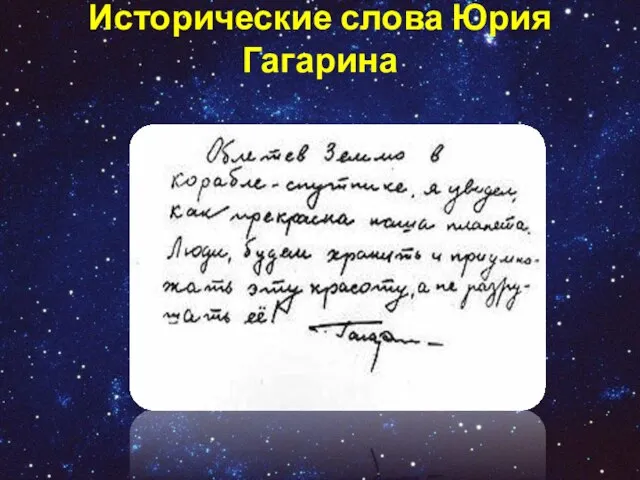 Исторические слова Юрия
Гагарина
Облетев Землю в
корабле-спутнике, я увидел,
как прекрасна наша планета.
Люди, будем хранить и приумно-
жать эту красоту, а не разру-
шать её!
Гагарин